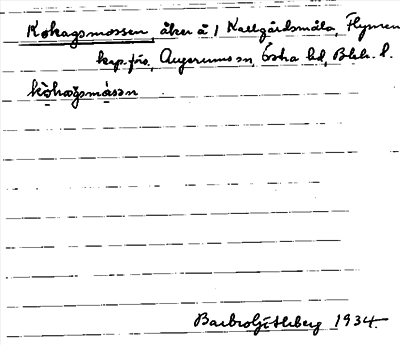 Kokagsmossen, åker å 1 Kallgårdsmåla, Flymen
kap.förs., Augerums sn, Östra hd, Blek. l.
kòkagsmåsən
Barbro 1934.